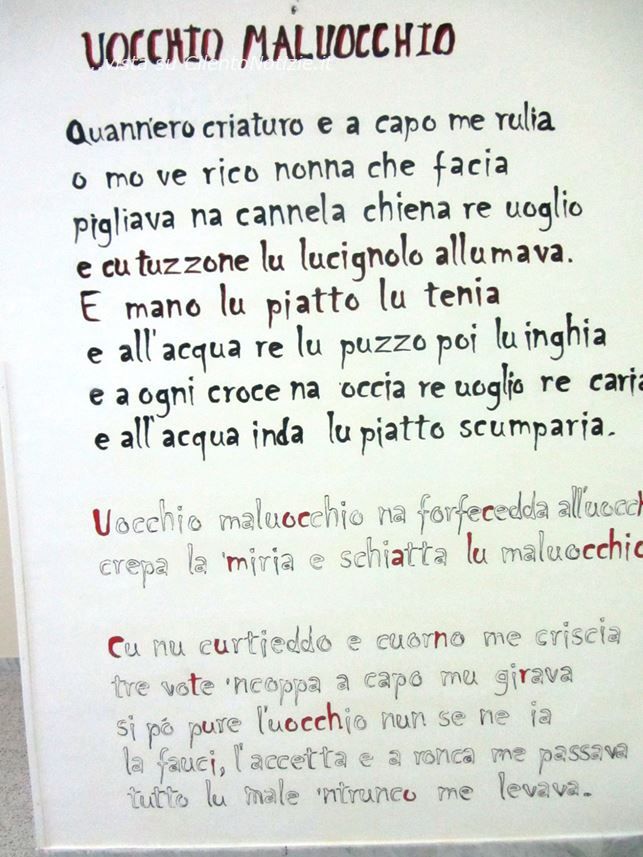 UOCCHIO MALUOCCHIO
...vista su CilentoNotizie.it
Quann'ero criaturo e a capo me rulia
o mo ve rico nonna che facia
pigliava na cannela chiena re uoglio
e cu tuzzone lu lucignolo allumava.
E mano lu piatto lu tenia
e all'acqua re lu puzzo poi lu inghia
e a ogni croce na 'occia re uoglio re caria
e all'acqua inda lu piatto scumparia.
Uocchio maluocchio na forfecedda all'uocch
crepa la 'miria e schiatta lu maluocchio
Cu nu curtieddo e cuorno me criscia
tre vote 'ncoppa a capo mu girava
si pó pure l'uocchio nun se ne ia
la fauci, l'accetta e a ronca me passava
tutto lu male 'ntrunco me levava.